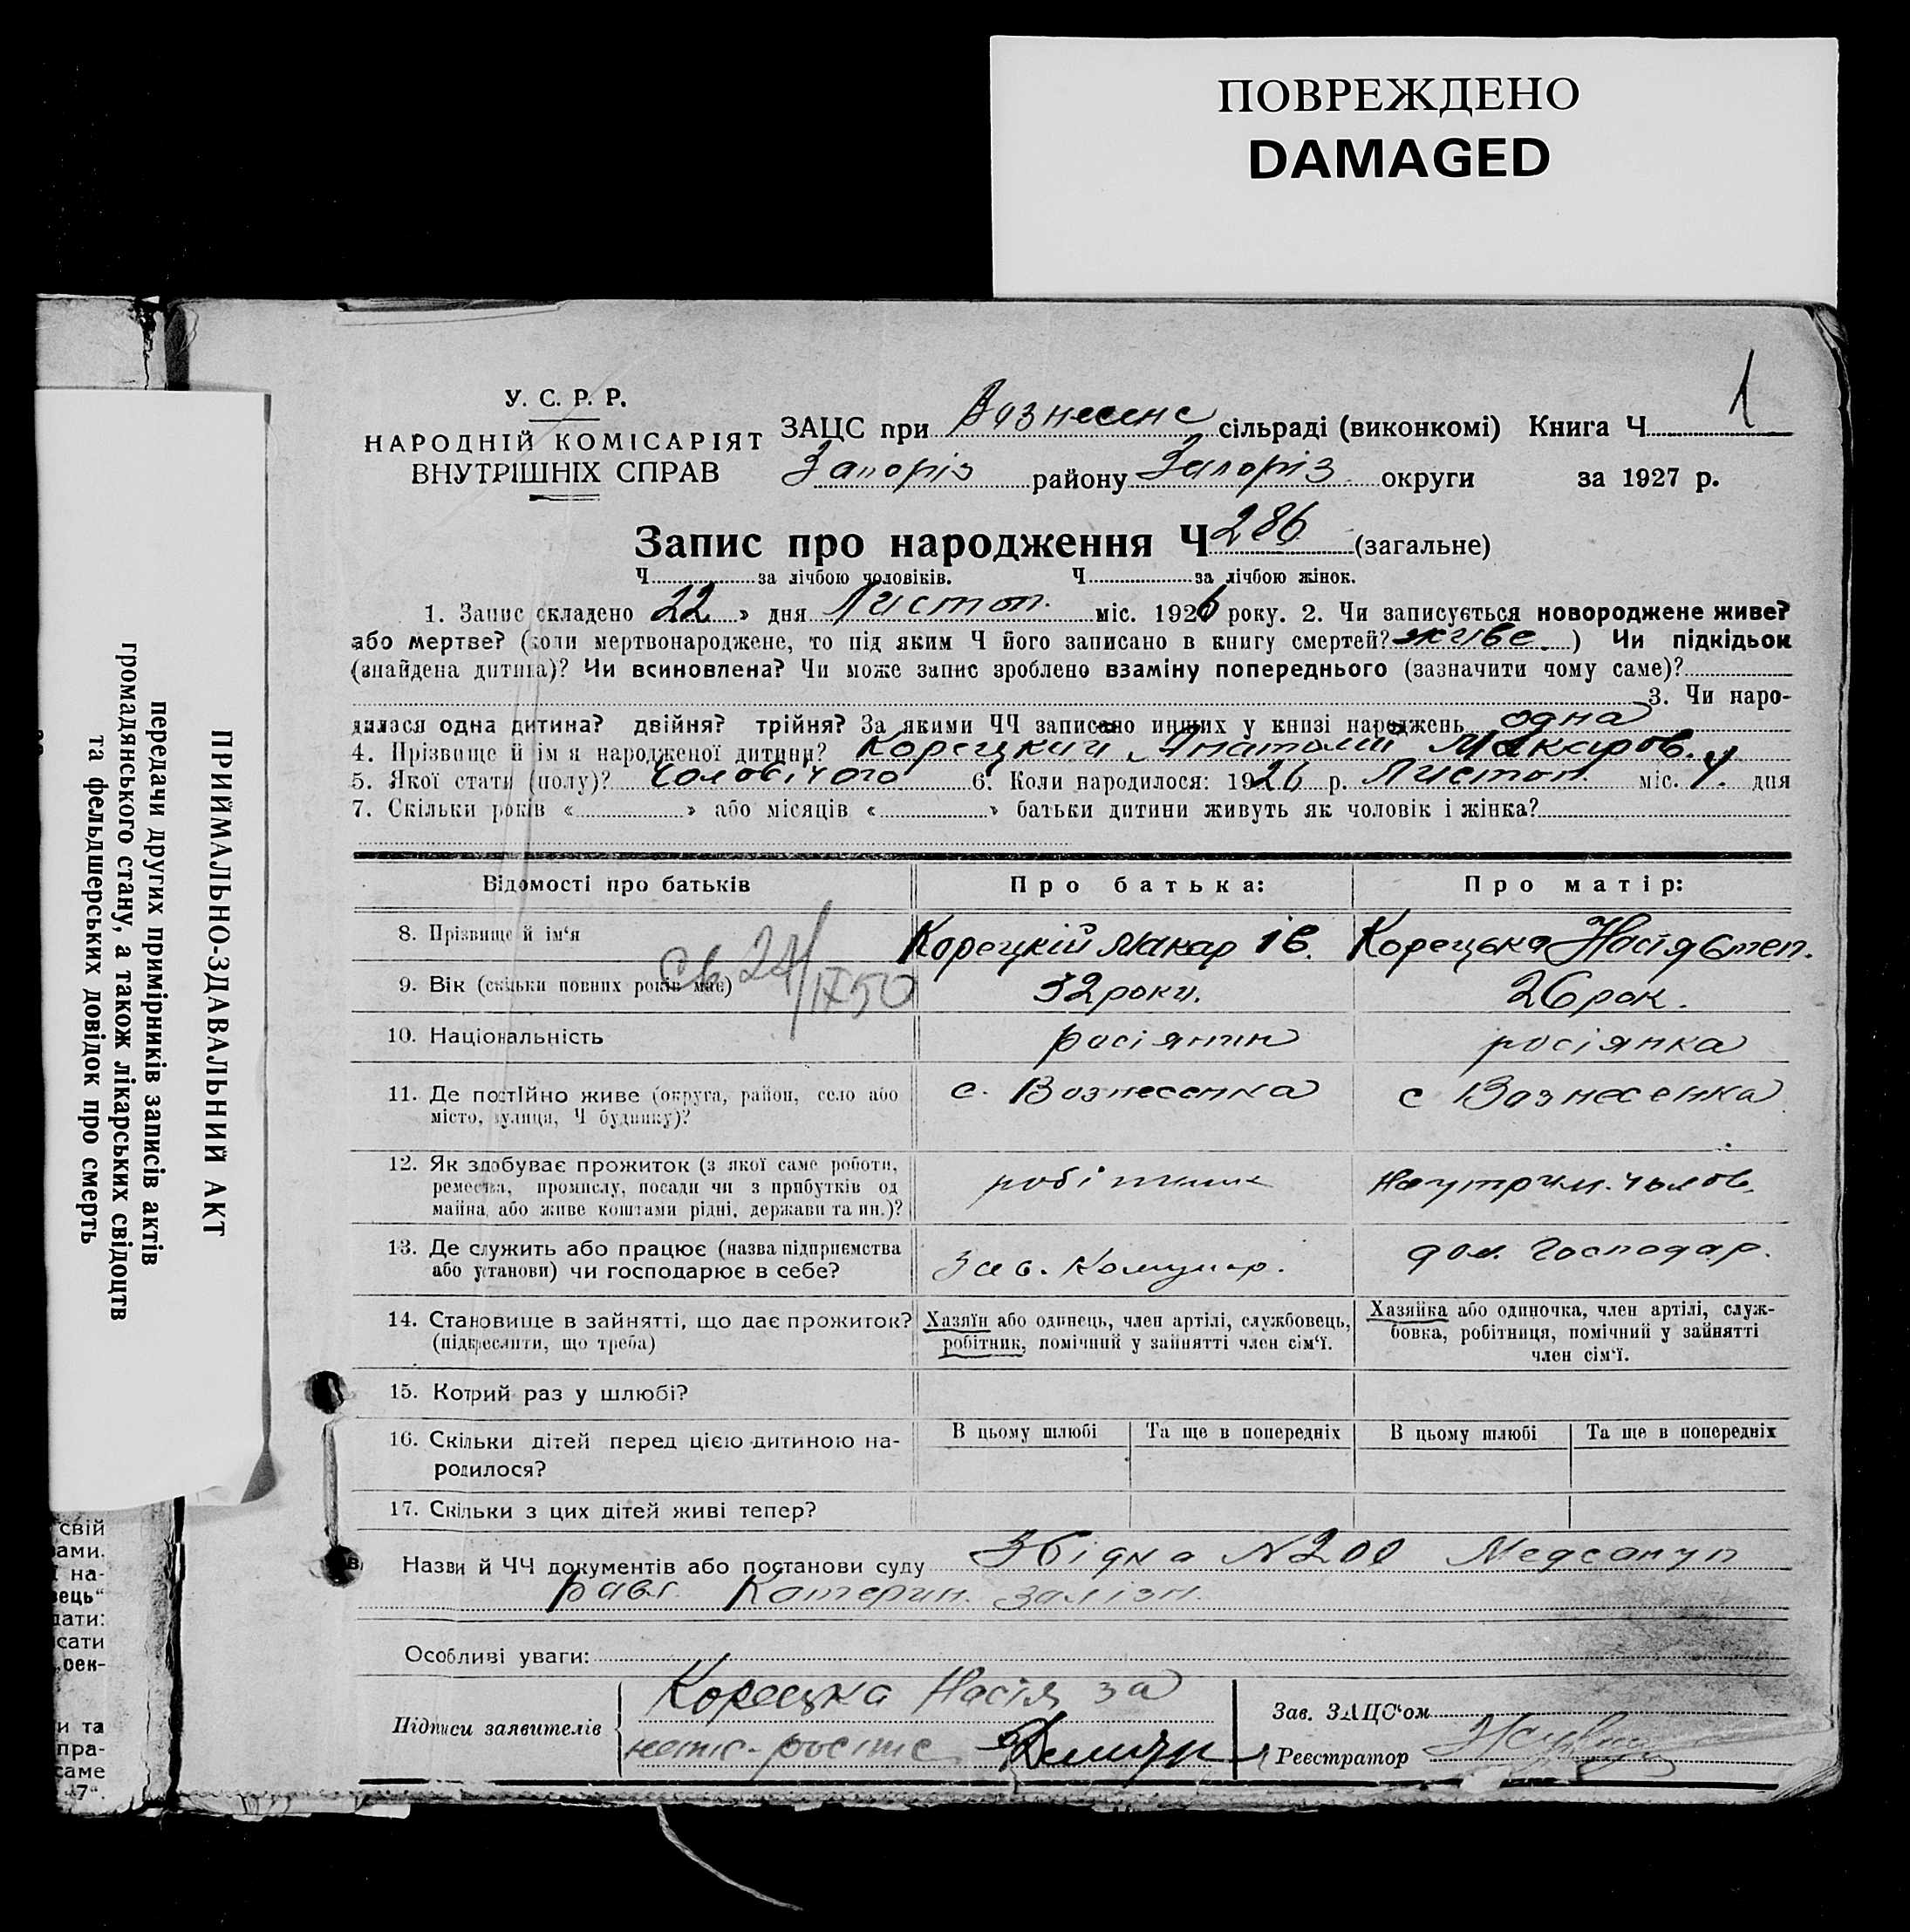 ПОВРЕЖДЕНО
DAMAGED
У. С. Р. Р.
НАРОДНІЙ КОМІСАРІЯТ
ВНУТРІШНІХ СПРАВ
ЗАЦС при Вознесенс сільраді (виконкомі) Книга Ч 1
Запоріз району Запоріз округи за 1927 р.
Запис про народження Ч 286 (загальне)
Ч за лічбою чоловіків. Ч за лічбою жінок.
1. Запис складено 22 » дня Листоп. міс. 1926 року. 2. Чи записується новороджене живе?
або мертве? (коли мертвонароджене, то під яким Ч його записано в книгу смертей? живе ) Чи підкідьок
(знайдена дитина)? Чи всиновлена? Чи може запис зроблено взаміну попереднього (зазначити чому саме)?
3. Чи наро-
дилася одна дитина? двійня? трійня? За якими ЧЧ записано инших у книзі народжень одна
4. Прізвище й ім я народженої дитини? Корецкий Анатолій Макаров.
5. Якої стати (полу)? Чоловічого 6. Коли народилося: 1926 р. Листоп. міс. дня
7. Скільки років « » або місяців « » батьки дитини живуть як чоловік і жінка?
Відомості про батьків Про батька: Про матір:
8. Прізвище й ім‘я Корецкій Макар Ів. Корецька Настя Степ.
9. Вік (скільки повних років має) 32 роки. 26 рок.
Св 24/IX 50
10. Національність росіянин росіянка
11. Де постійно живе (округа, район, село або
місто, вулиця, Ч будинку)?
с. Вознесенка с Вознесенка
12. Як здобуває прожиток (з якої саме роботи,
ремества, промислу, посади чи з прибутків од
майна, або живе коштами рідні, держави та ин.)?
робітник На утрим. чолов.
13. Де служить або працює (назва підприємства
або установи) чи господарює в себе?
зав. Комунар. дом. Господар.
14. Становище в зайнятті, що дає прожиток?
(підкреслити, що треба)
Хазяїн або одинець, член артілі, службовець,
робітник, помічний у зайнятті член сім‘ї.
Хазяйка або одиночка, член артілі, служ-
бовка, робітниця, помічний у зайнятті
член сім‘ї.
15. Котрий раз у шлюбі?
16. Скільки дітей перед цією дитиною на-
родилося?
В цьому шлюбі Та ще в попередніх В цьому шлюбі Та ще в попередніх
17. Скільки з цих дітей живі тепер?
Назви й ЧЧ документів або постанови суду N 200 Медсануп
Катерин. Залізн.
Особливі уваги:
Підписи заявителів
Корецка Настя за
Зав. ЗАЦС‘ом
Реєстратор
ПРИЙМАЛЬНО-ЗДАВАЛЬНИЙ АКТ
передачи других примірників записів актів
громадянського стану, а також лікарських свідоцтв
та фельдшерських довідок про смерть
свій
ами.
на-
вець“
дати:
сати
оек-
и та
пра-
саме